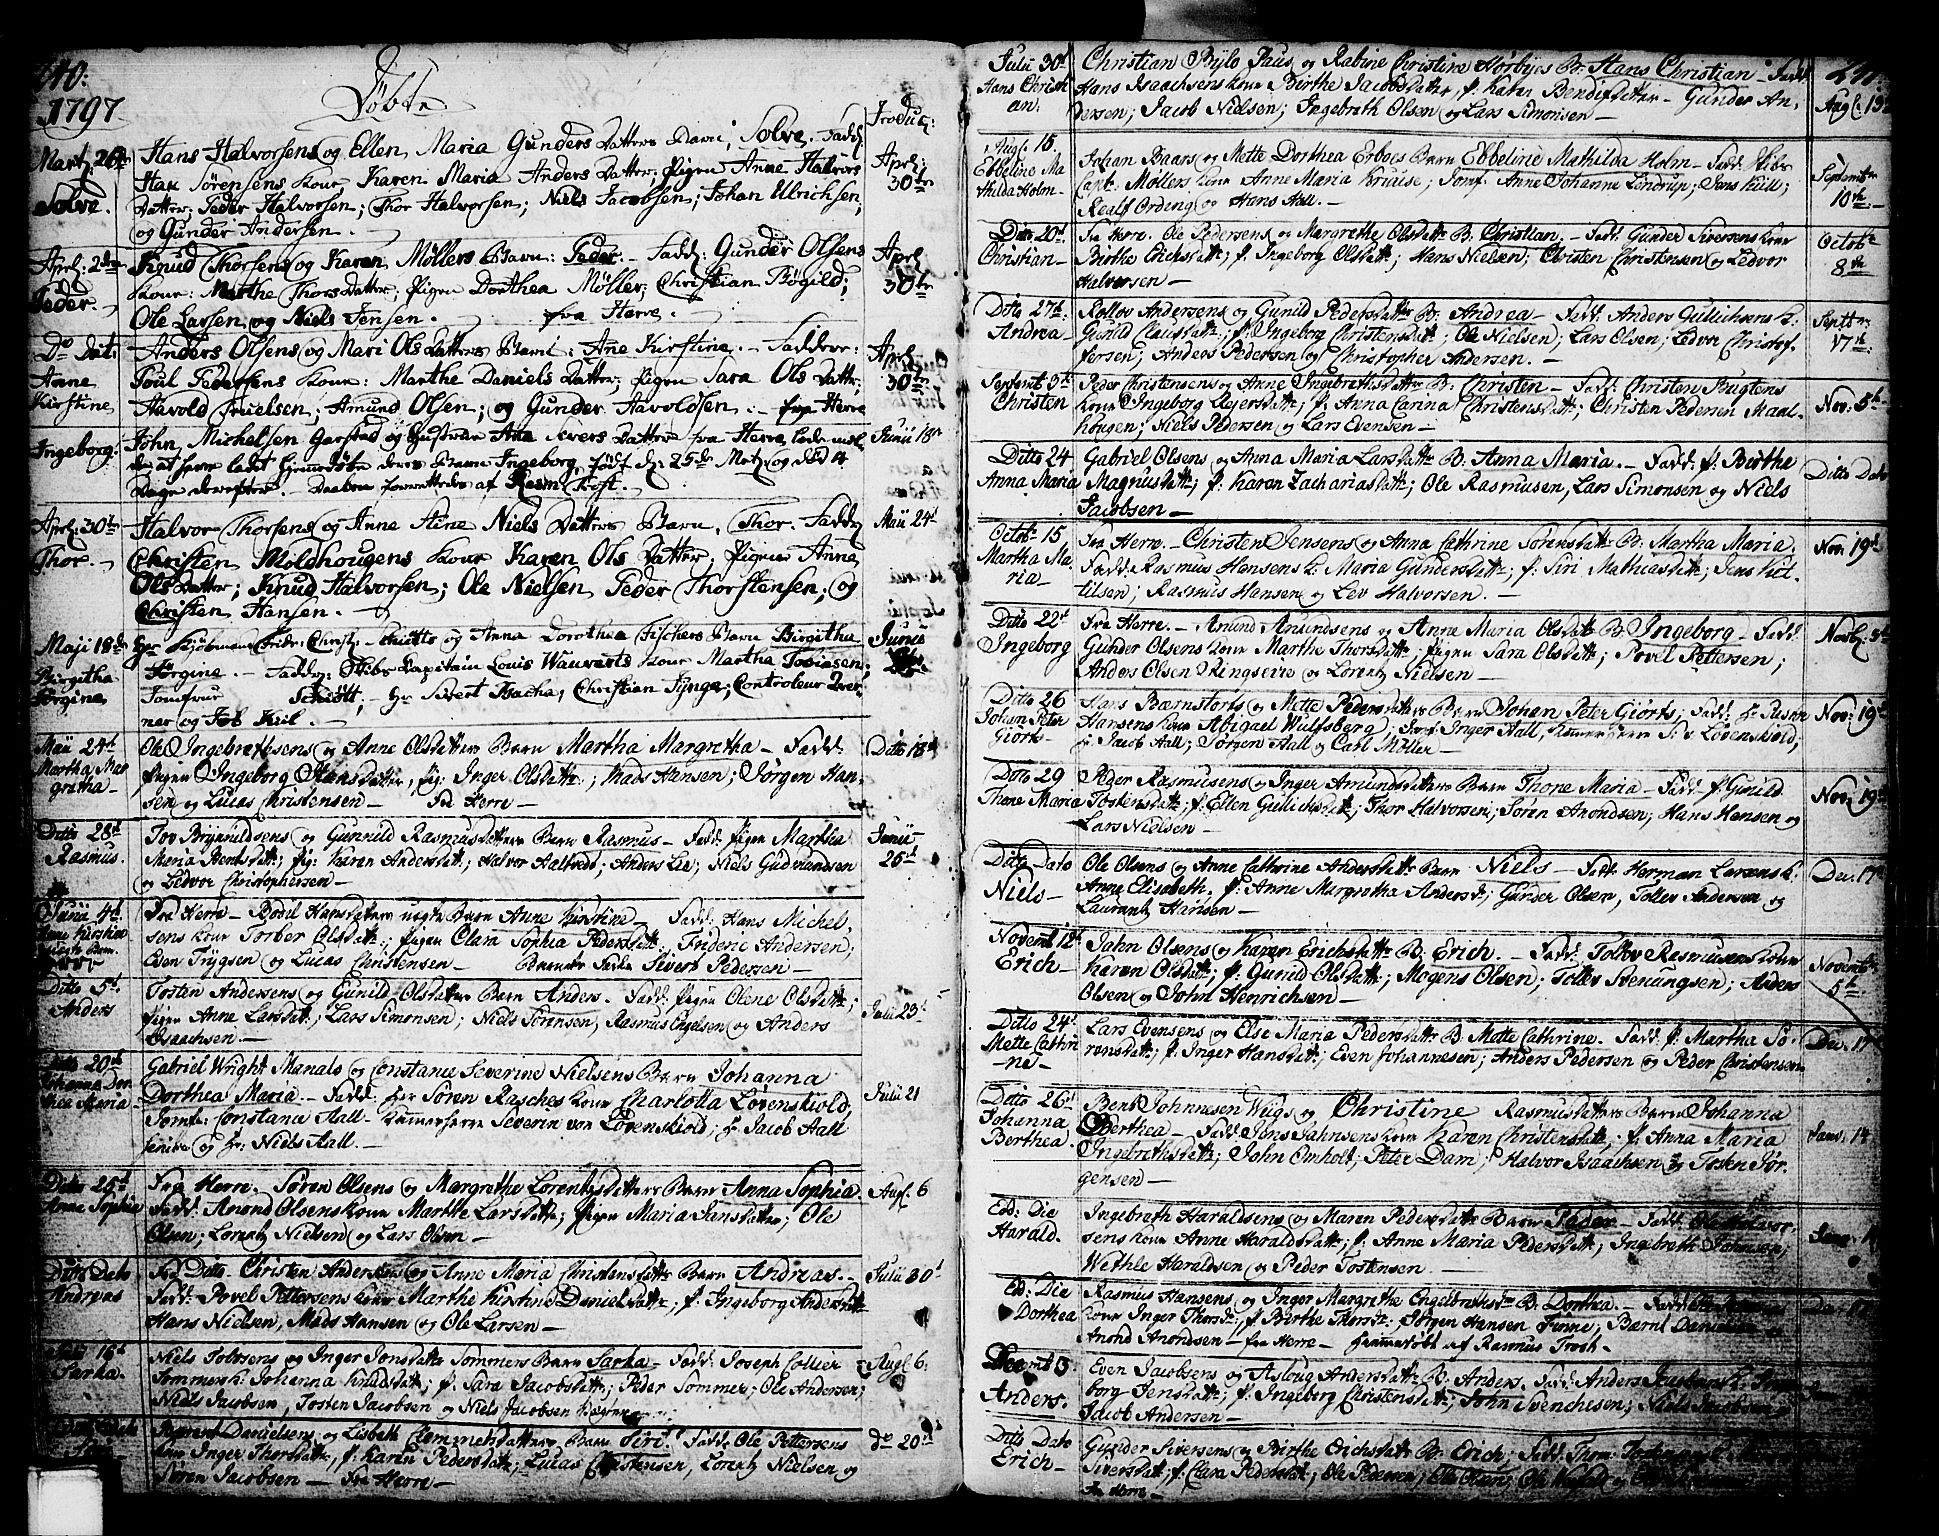 240:
1797
Döbte
Introduc:
Mart: 26de
Solve.
Hans Halvorsens og Ellen Maria Gunders Datters Barn, Solve. Fadd:
Hax Sørensens Kone, Karen Maria Anders Datter, Pigen Anne Halvors
Datter; Peder Halvorsen; Thor Halvorsen; Niels Jacobsen; Johan Ellrichsen;
og Gunder Andersen.
Apr: 30te
Apr: 2den
Peder.
Knud Thorsens og Karen Möllers Barn: Peder. Fadd: Gunder Olsens
Kone: Marthe Thors Datter; Pigen Dorthea Möller; Christian Bögild;
Ole Larsen og Niels Jensen. fra Herre.
Apr: 30te
Do Dat:
Anne
Kirstine
Anders Olsens og Mari Ols Datters Barn: Ane Kirstine. Faddere:
Poul Pedersens Kone: Marthe Daniels Datter; Pigen Sara Ols Datter;
Harold Nielsen; Amund Olsen; og Gunder Haroldsen. fra Herre
Apr: 30te
Ingeborg:
John Michelsen Garstad og Hustrue Ane Sivers Datter fra Herre, lode mel-
de at have ladet hjemmedøbe deres Barn Ingeborg, født d: 25de Mart: og død 4
Dage derefter. Daaben forrettedes af Rasm: Trost.
Junii 18de
Apr: 30te
Thor.
Halvor Thorsens og Anne Stine Niels Datters Barn, Thor. Fadd:
Christen Moldhougens Kone Karen Ols Datter; Pigen Anne
Ols Datter; Knud Halvorsen; Ole Nielsen Peder Thorstensen; og
Christen Hansen.
Maii 24d
Maji 18de
Birgitha
Jörgine
Hr Kjöbmand Fridr: Christ: Schiötts og Anna Dorothea Fischers Barn Birgitha
Jörgine. Fadd: Skibs Kapitain Louis Wauvarts Kone Martha Tobiasen,
Jomfrue Schiött, Hr Sivert Bacha, Christian Fynge, Controleur Wer-
ner og Job Kiil.
Junii
25
Maii 24d
Martha Mar
gretha
Ole Ingebrethsens og Anne Olsdatters Barn Martha Margretha Fadd:
Pigen Ingeborg Hansdatter, Pig: Inger Olsdatt:; Mads Hansen; Jörgen Han-
sen og Lucas Christensen Fra Herre
Ditto 18d
Ditto 28d
Rasmus.
Tov Brynuldsens og Gunnild Rasmusdatters Barn Rasmus Fadd: Pigen Martha
Maria Hentsdatt:; Pig: Karen Andersdatt:; Halvor Halvedo, Anders Lie; Niels Gudmundsen
og Ledvor Christophersen
Junii
25d
Junii 4d
Anne Kirstine
uægte Barn
Fra Herre Bodil Hansdatters uægte Barn Anne Kirstine Fadd: Hans Michel-
sens Kone Torber Olsdatt:; Pigen Clara Sophia Pedersdatt:, Frideric Andersen;
Even Trygsen og Lucas Christensen Barnets Fader Sivert Pedersen
Ditto 5d
Anders
Tosten Andersens og Gunild Olsdatters Barn Anders. Fadd: Pigen Olene Olsdatt:;
Pigen Anne Larsdatt:; Lars Simonsen; Niels Sörensen, Rasmus Engelsen og Anders
Isaachsen.
Julii 23d
Ditto 20d
Johanna Dor
thea Maria
Gabriel Wright Manals og Constance Severine Nielsens Barn Johanna
Dorthea Maria. Fadd: Hr Sören Rasches Kone Charlotta Lövenskiold,
Jomf: Constance Aall. Kammerherre Severin von Lövenskiold; H Jacob Aall
senior og Hr: Niels Aall.
Julii 21
Ditto 25d
Anne Sophia
Fra Herre. Sören Olsens og Margrethe Lorentsdatters Barn Anna Sophia.
Fadd: Anond Olsens Kone Marthe Larsdatter; Pigen Maria Jansdatter; Ole
Olsen; Lorentz Nielsen og Lars Olsen
Augl. 6
Ditto Dato
Andreas
Fra Dito Christen Andersens og Anne Maria Christensdatters Barn Andreas.
Fadd: Povel Pettersens Kone Marthe Kirstine Danielsdatter, P: Ingeborg Andersdatt:
Hans Nielsen, Mads Hansen og Ole Larsen
Julii 30d
Julii 16d
Sarha.
Niels Tobrsens og Inger Jonsdatter Sommers Barn Sarha Fadd: Joseph Collier
Sommers K: Johanna Knudsdatt:; P: Sara Jacobsdatt:; Peder Sommer; Ole Andersen;
Niels Jacobsen, Tosten Jacobsen og Niels Jacobsen
Augl 6:
Ditto Dato
Siri
Bærent Danielsens og Lisbeth Clemmetsdatters Barn Siri. Fadd: Ole Pettersens
Kone Inger Thorsdatt:, P: Karen Pedersdatt:; Lucas Christensen, Lorentz Nielsen og
Sören Jacobsen Fra Herre
do 20d
241
Julii 30d
Hans Christi
an.
Christian Bylo Paus og Rabine Christine Hörbyes B: Hans Christian Fadd:
Hans Isaachsens Kone Birthe Jacobsdatter, P: Karen Bendixdatter Gunder An-
dersen; Jacob Nielsen; Ingebreth Olsen og Lars Simonsen
Augl: 13
Augl. 15.
Ebbeline Ma
thilda Holm
Johan Baars og Mette Dorthea Erboes Barn Ebbeline Mathilda Holm Fadd: Skibs
Capt. Möllers Kone Anne Maria Kruuse; Jomf. Anne Johanne Lindrup; Jens Kiil;
Realf Ording og Hans Aall.
Septembr
10de
Ditto 20d
Christian
Fra Herre. Ole Pedersens og Margrethe Olsdatt: B. Christian. Fadd: Gunder Siversens Kone
Birthe Erichsdatt:; P. Ingeborg Olsdatt:; Hans Nielsen; Christen Christensen og Ledvor
Halvorsen
Octobr
8de
Ditto 27d
Andrea
Rollov Andersens og Gunild Pedersdatters B: Andrea Fadd: Anders Gullichsens K:
Gunild Clausdatt:; P. Ingeborg Christensdatt:; Ole Nielsen; Lars Olsen; Ledvor Christof-
fersen; Anders Pedersen og Christopher Andersen.
Septtr:
17de
Septembr 3d
Christen
Peder Christensens og Anne Ingebrethsdatters B: Christen Fadd: Christen
Kone Ingeborg Rejersdatt:; P. Anna Carina Christensdatt:; Christen Pedersen Maal-
hougen; Niels Pedersen og Lars Evensen
Nov: 5d
Ditto 24
Anna Maria
Gabriel Olsens og Anna Maria Larsdatt: B: Anna Maria. Fadd: P: Birthe
Magnusdatt:; P: Karen Zachariasdatt:; Ole Rasmusen, Lars Simonsen og Niels
Jacobsen
Ditto Dato
Octobr 15
Martha Ma
ria
Fra Herre. Christen Jensens og Anna Cathrine Sörensdatters B: Martha Maria.
Fadd: Rasmus Hansens K: Maria Gundersdatt:; P: Siri Mathiasdatt:; Jens Kit-
tilsen; Rasmus Hansen og Lev Halvorsen.
Nov: 19d
Ditto 22d
Ingeborg
Fra Herre. Anund Anundsens og Anne Maria Olsdatt: B: Ingeborg Fadd:
Gunder Olsens Kone Marthe Thorsdatt:; Pigen Sara Olsdatt:; Povel Pettersen;
Anders Olsen Ringseire og Lorentz Nielsen
Novbr 5d
Ditto 26
Johan Peter
Giörts
Hans Bærnstorfs og Mette Pedersdatters Barn Johan Peter Giörts; Fadd: H:
Hansens Kone Abigael Wulfsberg; Jomf: Inger Aall, Kammerherre S: v Lövenskiold;
H Jacob Aall; Jörgen Aall og Carl Müller
Nov: 19d
Ditto 29
Thone Maria
Peder Rasmusens og Inger Amundsdatters Barn Thone Maria Fadd: P. Gunild
Tostensdatt:; P. Ellen Gullichsdatt:, Thor Halvorsen; Sören Anondsen; Hans Hansen og
Lars Nielsen
Nov: 19d
Ditto Dato
Niels
Ole Olsens og Anne Cathrine Andersdatters Barn Niels Fadd: Herman Larsens K:
Anne Elisabeth. P: Anne Margretha Andersdt:; Gunder Olsen, Tollev Andersen og
Laurentz Hansen
Dec: 17d
Novembr 12d
Erich
John Olsens og Karen Erichsdatt: B: Erich. Fadd: Tollov Rasmusens Kone
Karen Olsdatt:; P: Gunild Olsdatt:; Mogens Olsen; Tollev Svenungsen; Anders
Olsen og John Henrichsen
Novembr:
5d.
Ditto 24d
Mette Cathri
ne
Lars Evensens og Else Maria Pedersdatt: B: Mette Cathrine. Fadd: P. Martha Sö-
rensdatt:; P: Inger Hansdatt:; Even Johannesen; Anders Pedersen og Peder Christensen
Dec: 17d
Ditto 26d
Johanna
Berthea.
Bent Johnnesen Wiigs og Christine Rasmusdatters Barn Johanna
Berthea Fadd: Jens Jahnsens Kone Karen Christensdatt:, P: Anna Maria
Ingebrethsdatt:; John Omholt, Peter Dam; Halvor Isaachsen og Tosten Jör-
gensen
Janv: 14
Ed: Die
Harald.
Ingebreth Haraldsens og Maren Pedersdatt: Barn Peder Fadd: Ole Halvor-
sens Kone Anne Haraldsdatt:; P: Anne Maria Pedersdatt:, Ingebreth Johnsen;
Wethle Haraldsen og Peder Tostensen.
Janv:
Ed: Die
Dorthea
Rasmus Hansens og Inger Margrethe Engebrethsdtr B: Dorthea. Fadd:
Kone Inger Thorsdt:; P: Birthe Thorsdt: Jörgen Hansen Funne, Bærnt Danielsen og
Anond Anondsen fra Herre hjemmedöbt af Rasmus Trost
Decembr 3
Anders.
Even Jacobsens og Asloug Andersdatters B: Anders. Fadd: Anders K: Inge-
borg Jensdatt:; P. Ingeborg Christensdatt:; John Svenchesen; Niels Jacobsen og
Jacob Andersen
Ditto Dato
Erich
Gunder Siversens og Birthe Erichsdatters B: Erich. Fadd: Thom:
Siversdatt:; P: Clara Pedersdatt:; Ole Pedersen; Ole
fra Herre